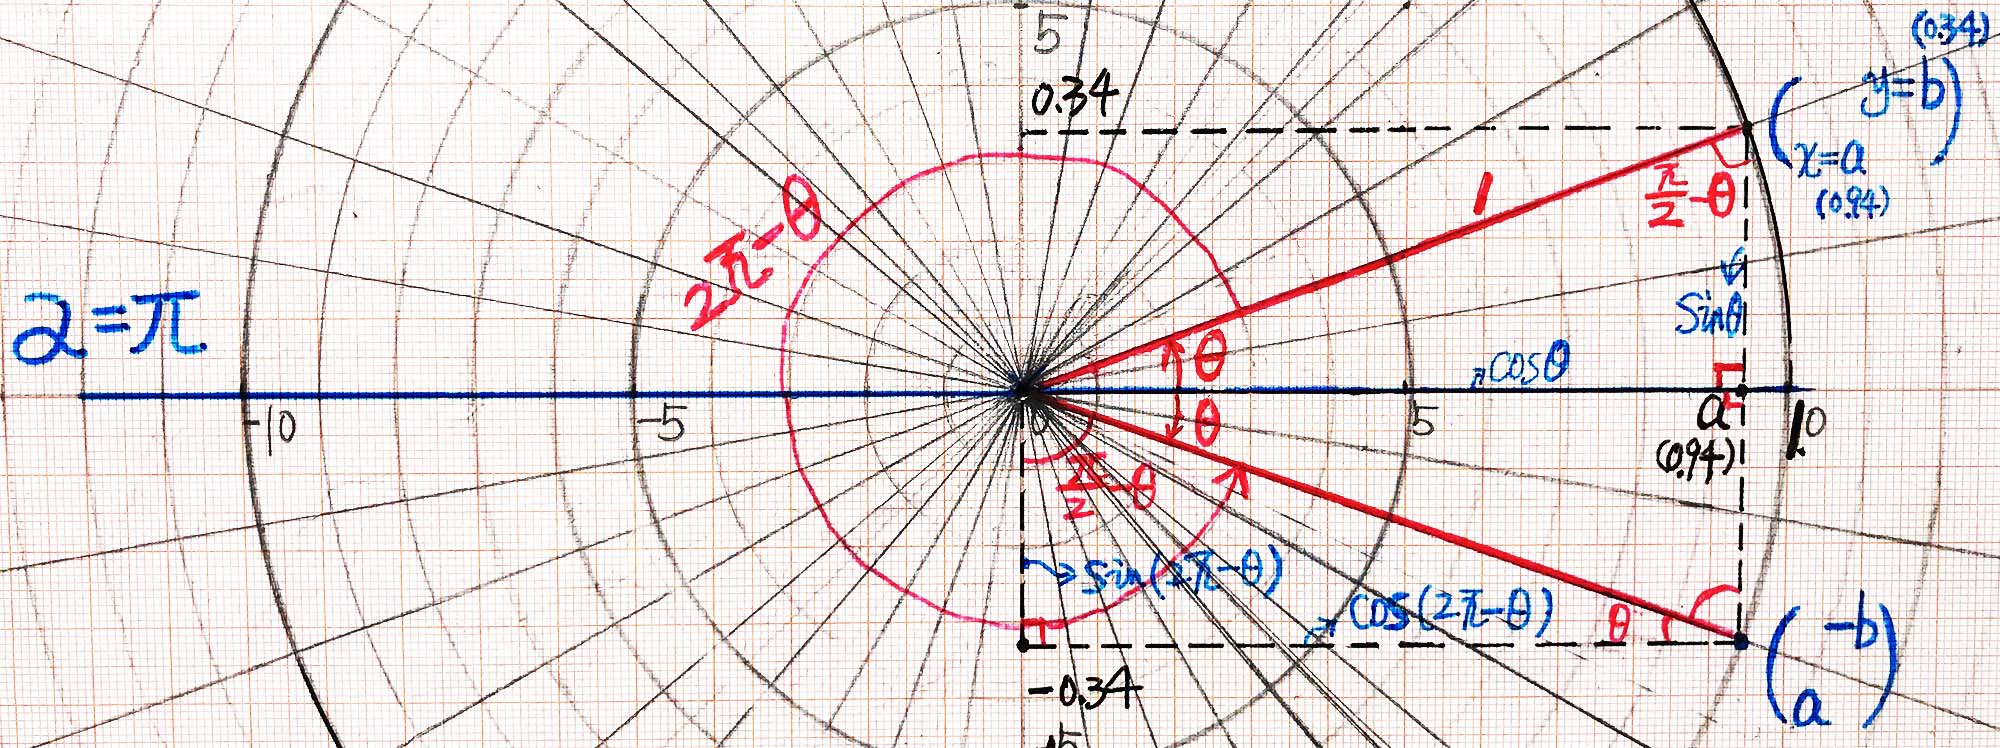 5
(0.34)
0.34
( y=b )
x=a
(0.94)
1
π/2-θ
2π-θ
Sinθ
2=π
θ
cosθ
-10
-5
0
θ
5
a
10
(0.94)
π/2-θ
sin(2π-θ)
cos(2π-θ)
θ
( -b )
a
-0.34